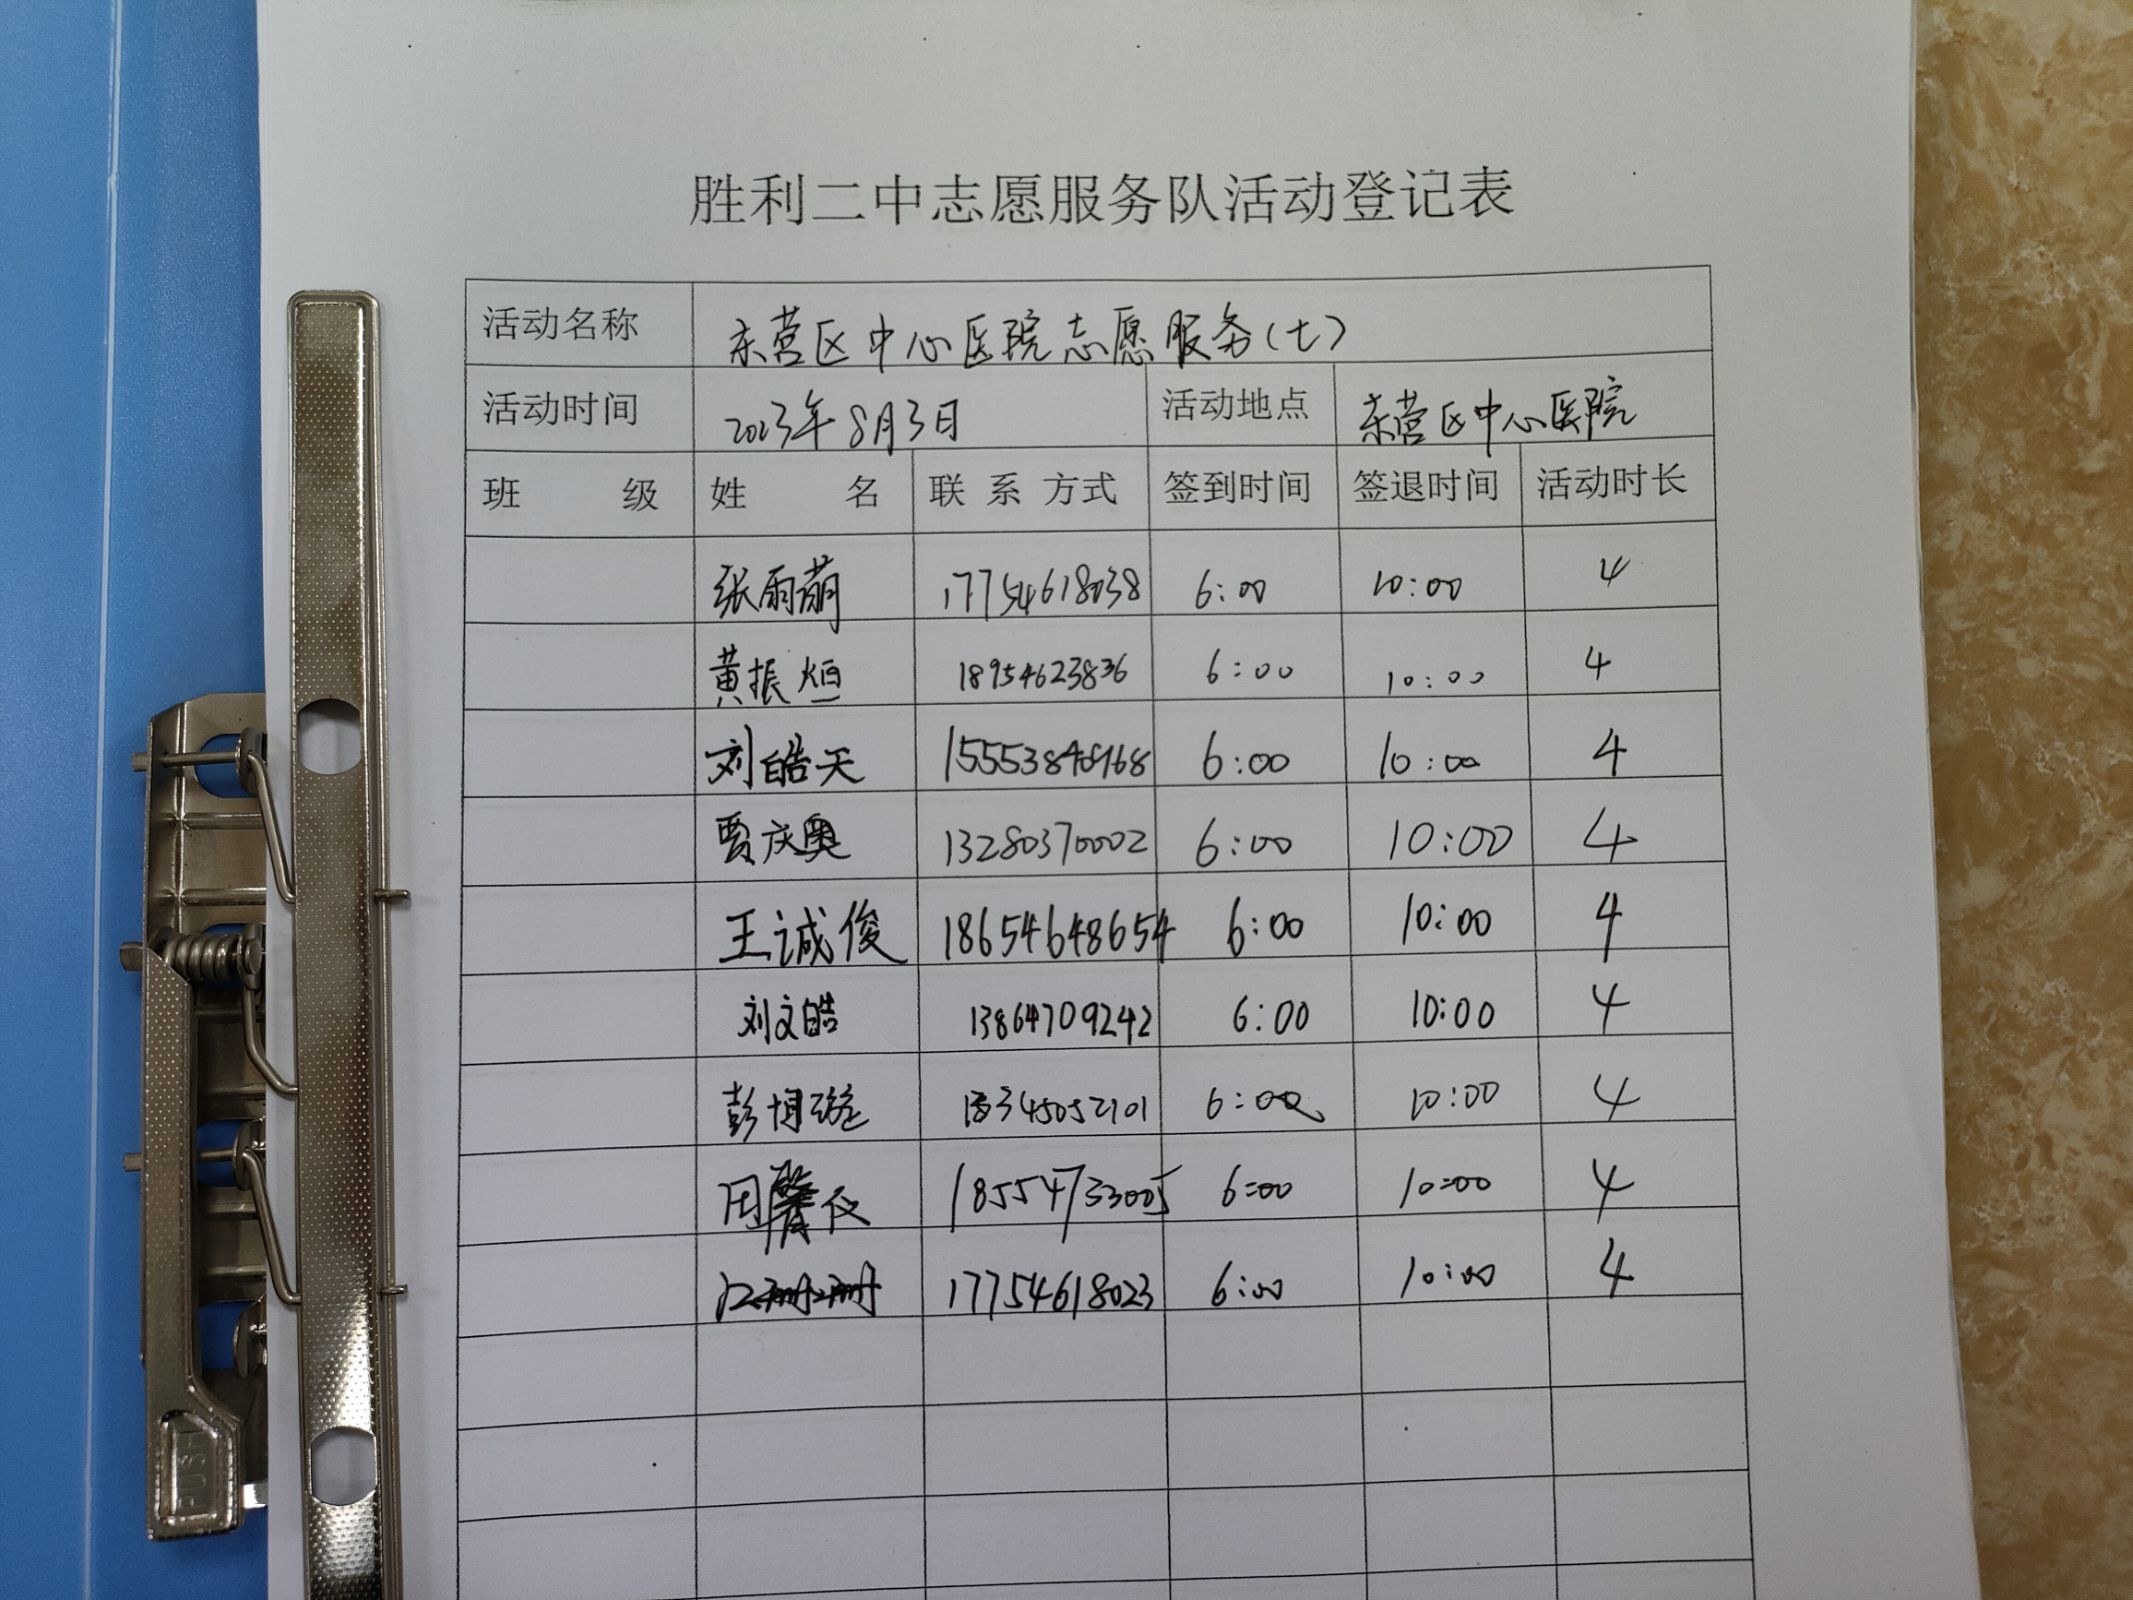 胜利二中志愿服务队活动登记表
活动名称 东营区中心医院志愿服务(七)
活动时间 2023年8月3日 活动地点 东营区中心医院
班 级 姓 名 联 系 方式 签到时间 签退时间 活动时长
张雨萌 17754618038 6:00 10:00 4
黄振烜 18954623836 6:00 10:00 4
刘皓天 6:00 10:00 4
贾庆奥 13280370002 6:00 10:00 4
王诚俊 18654648654 6:00 10:00 4
刘文皓 13864709242 6:00 10:00 4
彭 6:00 10:00 4
周馨仪 18554733005 6:00 10:00 4
17754618023 6:00 10:00 4
PUSH